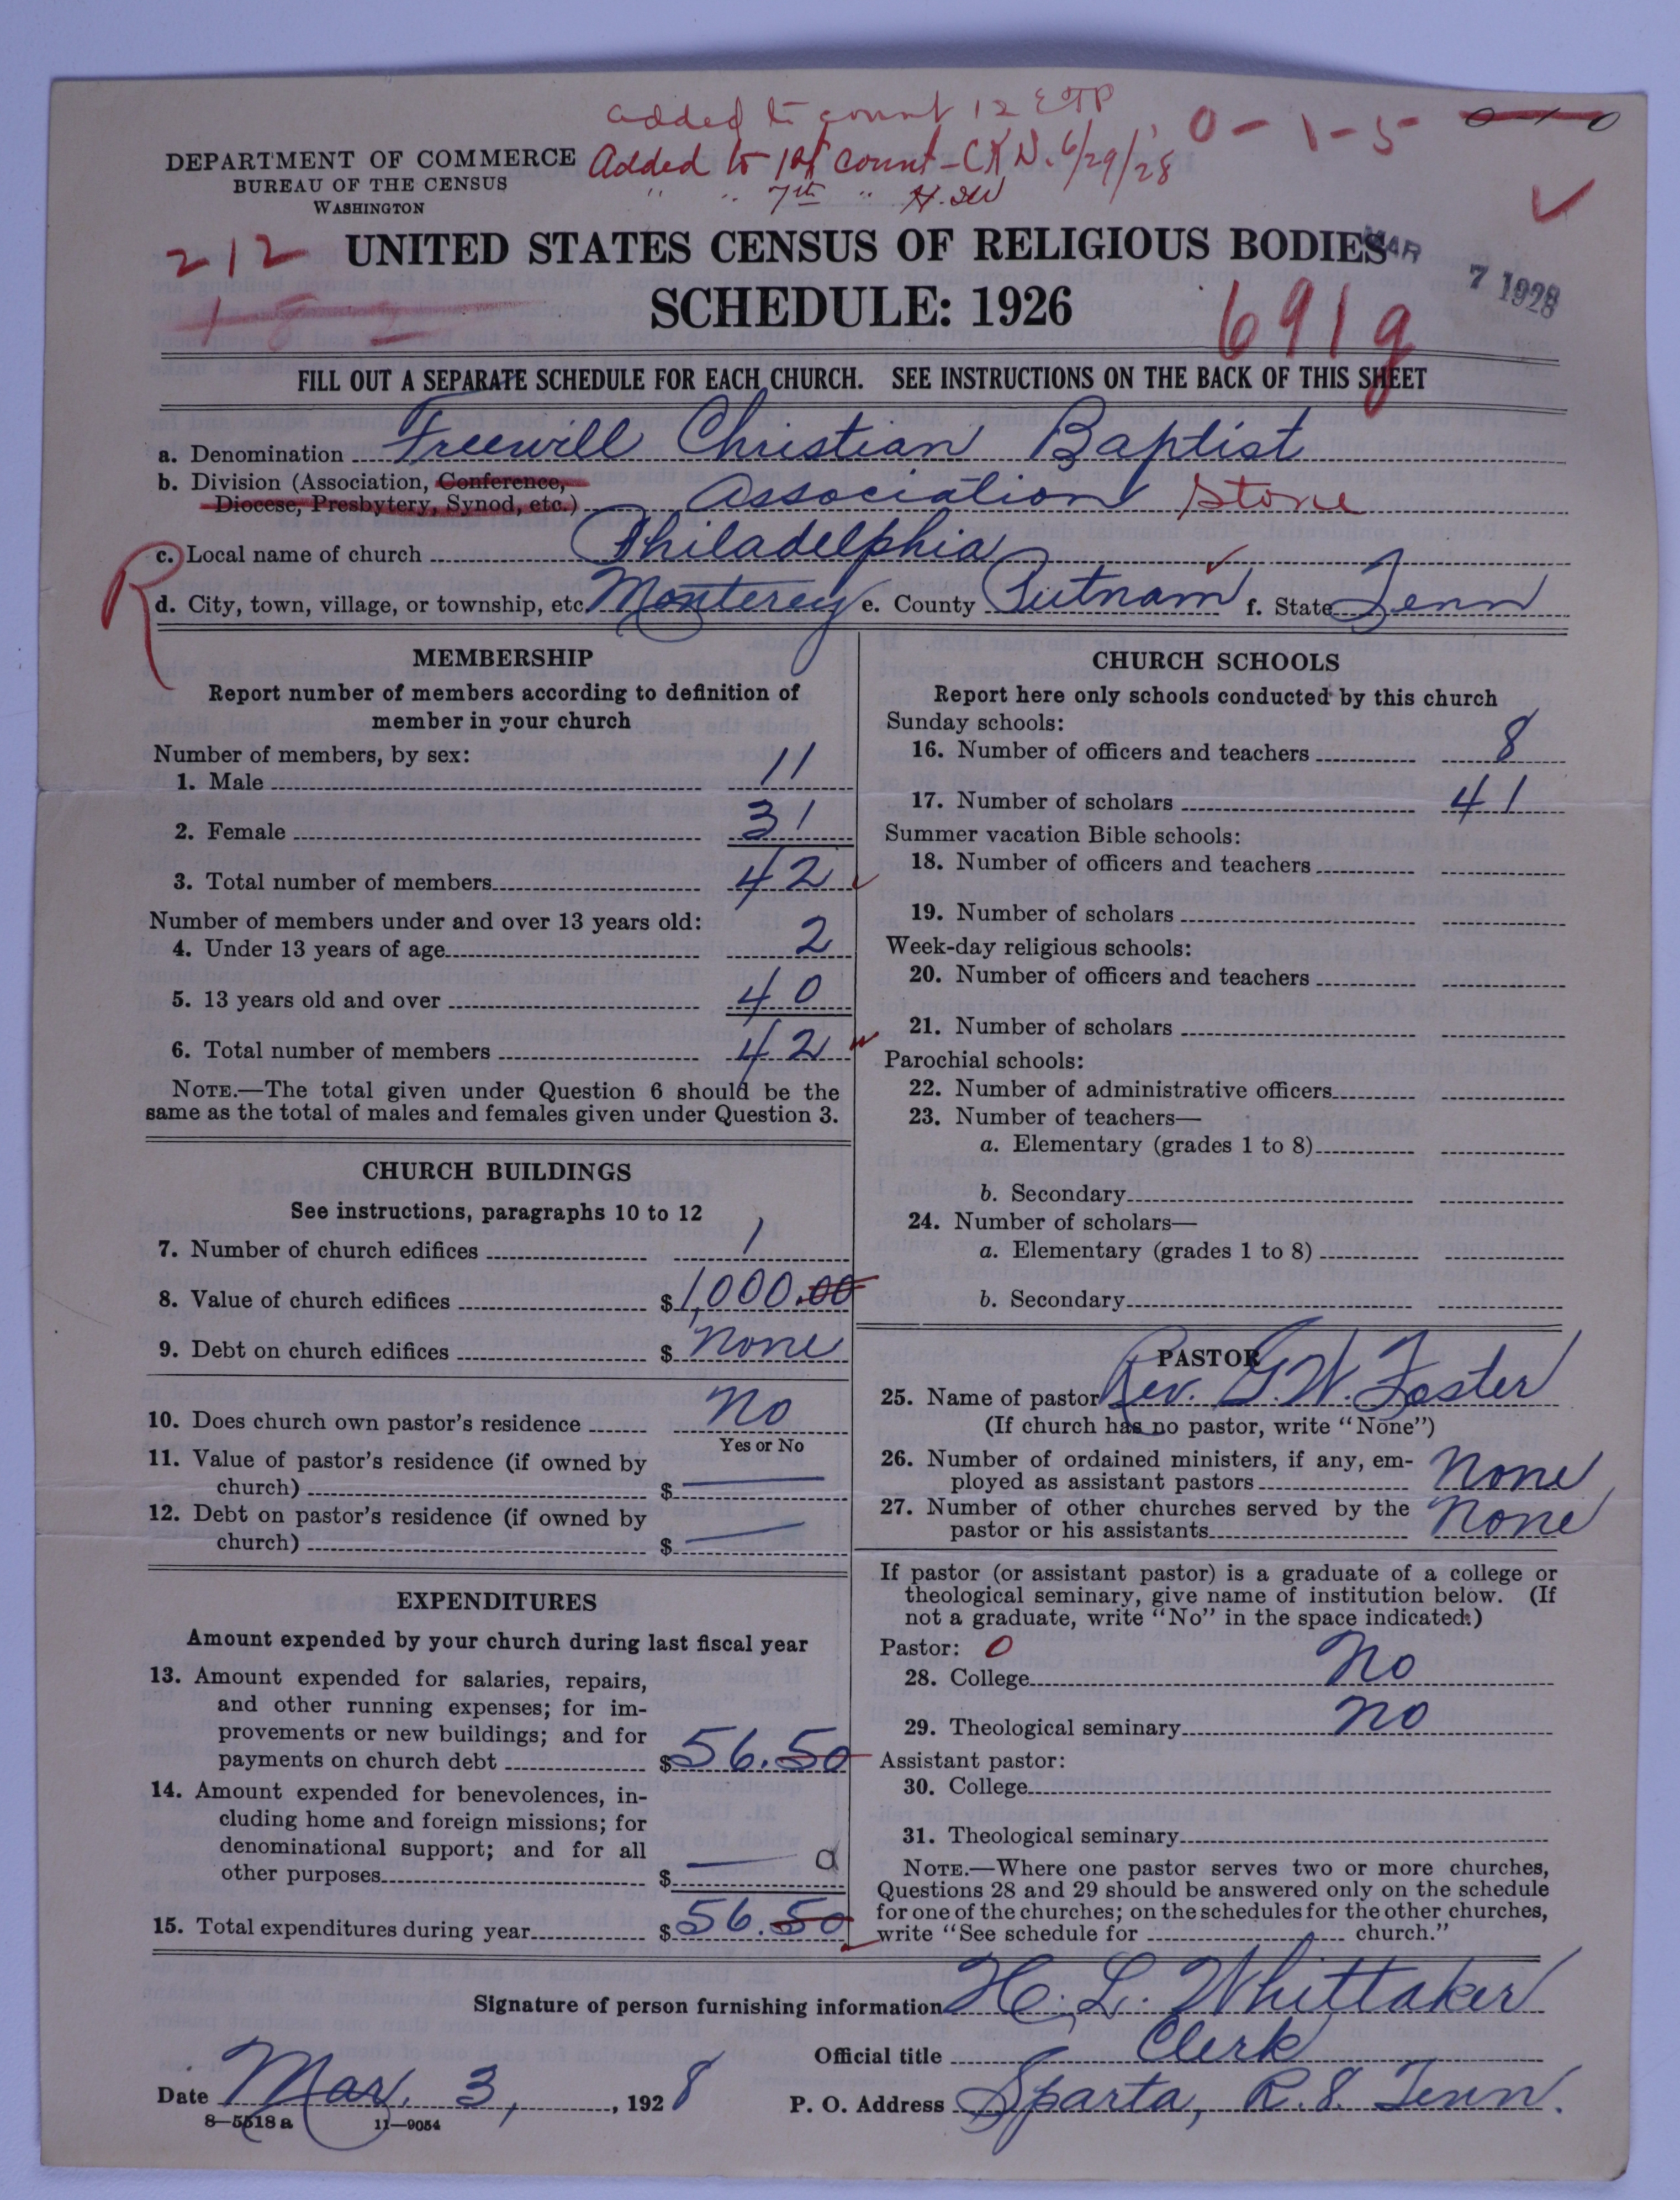 added to count 12 ETP
0-1-5
DEPARTMENT OF COMMERCE
BUREAU OF THE CENSUS
WASHINGTON
Added to 1st count - CKN. 6/29/28
" " 7th " H.
212 UNITED STATES CENSUS OF RELIGIOUS BODIES
MAR 7 1928
SCHEDULE: 1926
691g
FILL OUT A SEPARATE SCHEDULE FOR EACH CHURCH. SEE INSTRUCTIONS ON THE BACK OF THIS SHEET
a. Denomination Freewill Christian Baptist
b. Division (Association, Conference, Diocese, Presbytery, Synod, etc.) Association Stone
c. Local name of church Philadelphia
R
d. City, town, village, or township, etc. Monterey e. County Putnam f. State Tenn
MEMBERSHIP
Report number of members according to definition of
member in your church
Number of members, by sex:
1. Male 11
2. Female 31
3. Total number of members 42
Number of members under and over 13 years old:
4. Under 13 years of age 2
5. 13 years old and over 40
6. Total number of members 42
NOTE.—The total given under Question 6 should be the
same as the total of males and females given under Question 3.
CHURCH BUILDINGS
See instructions, paragraphs 10 to 12
7. Number of church edifices 1
8. Value of church edifices $1,000.00
9. Debt on church edifices $ none
10. Does church own pastor's residence no
Yes or No
11. Value of pastor's residence (if owned by
church) $ —
12. Debt on pastor's residence (if owned by
church) $ —
EXPENDITURES
Amount expended by your church during last fiscal year
13. Amount expended for salaries, repairs,
and other running expenses; for im-
provements or new buildings; and for
payments on church debt $56.50
14. Amount expended for benevolences, in-
cluding home and foreign missions; for
denominational support; and for all
other purposes $ —
15. Total expenditures during year $56.50
CHURCH SCHOOLS
Report here only schools conducted by this church
Sunday schools:
16. Number of officers and teachers 8
17. Number of scholars 41
Summer vacation Bible schools:
18. Number of officers and teachers
19. Number of scholars
Week-day religious schools:
20. Number of officers and teachers
21. Number of scholars
Parochial schools:
22. Number of administrative officers
23. Number of teachers—
a. Elementary (grades 1 to 8)
b. Secondary
24. Number of scholars—
a. Elementary (grades 1 to 8)
b. Secondary
PASTOR
25. Name of pastor Rev. G.W. Foster
(If church has no pastor, write "None")
26. Number of ordained ministers, if any, em-
ployed as assistant pastors none
27. Number of other churches served by the
pastor or his assistants none
If pastor (or assistant pastor) is a graduate of a college or
theological seminary, give name of institution below. (If
not a graduate, write "No" in the space indicated.)
Pastor: 0
28. College no
29. Theological seminary no
Assistant pastor:
30. College
31. Theological seminary
NOTE.—Where one pastor serves two or more churches,
Questions 28 and 29 should be answered only on the schedule
for one of the churches; on the schedules for the other churches,
write "See schedule for church."
Signature of person furnishing information H. L. Whittaker
Official title Clerk
Date Mar. 3, 1928 P. O. Address Sparta, R. 8. Tenn.
8—5518 a 11—9054